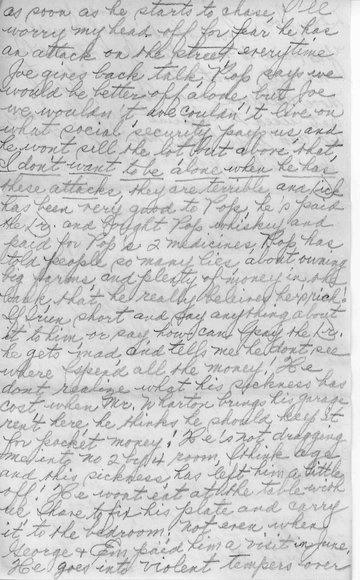 as soon as he starts to chase, I'll
worry my head off for fear he has
an attack on the street everytime
Joe gives back talk. Pop says we
would be better off alone but Joe
we wouldn't we couldn't live on
what social security pays us and
he won't sell the lot but above that,
I don't want to be alone when he has
these attacks they are terrible and
has been very good to Pop, he's paid
the Dr. and bought Pop whiskey and
paid for Pop's 2 medicines, Pop has
told people so many lies about owning
big farms, and plenty of money in the
bank that, he really believes he's rich.
If I run short and say anything about
it to him, or say how can I pay the Dr.
he gets mad and tells me he don't see
where I spend all the money. He
don't realize what his sickness has
cost when Mr. Wharton brings his garage
rent here he thinks he should keep it
for pocket money. He's not dragging
me into no 2 by 4 room, I think age
and this sickness has left him a little
off. He wont eat at the table with
us I have to fix his plate and carry
it to the bedroom, not even when
George & Em paid him a visit in June,
He goes into violent tempers over